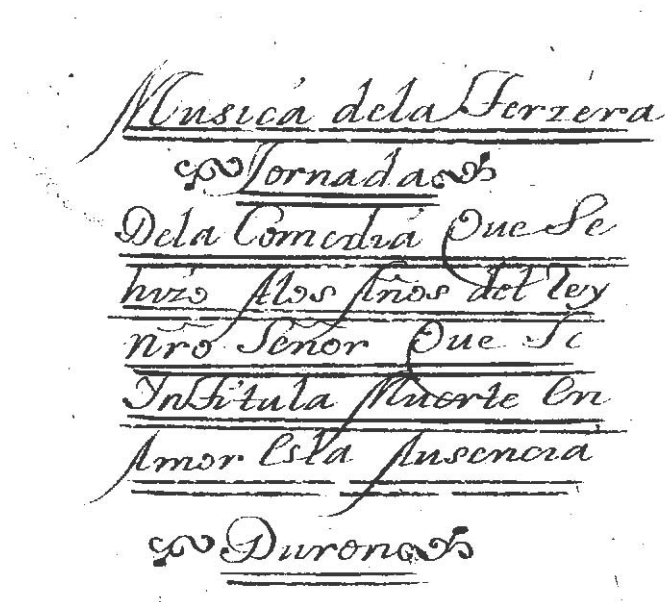 Musica dela Terzera
Jornada
Dela Comedia Que Se
hizo Alos Años del Rey
nr̃o Señor Que Se
Yntitula Muerte en
Amor es la Ausencia
Duron